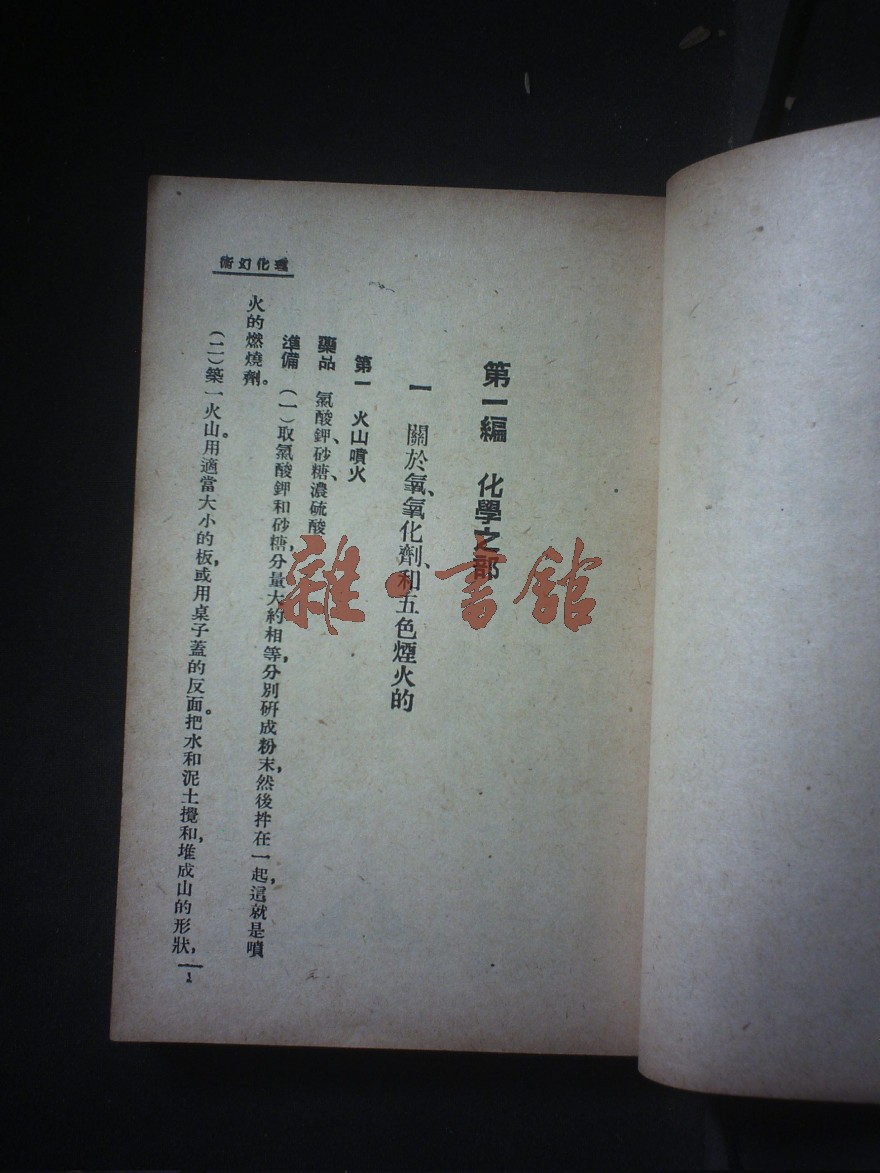 理化幻術
第一編 化學之部
一 關於氧、氧化劑、和五色煙火的
第一 火山噴火
藥品 氯酸鉀、砂糖、濃硫酸
準備 (一)取氯酸鉀和砂糖,分量大約相等,分別研成粉末,然後拌在一起,這就是噴
火的燃燒劑。
(二)築一火山。用適當大小的板,或用桌子蓋的反面。把水和泥土攪和,堆成山的形狀,
1
雜·書館